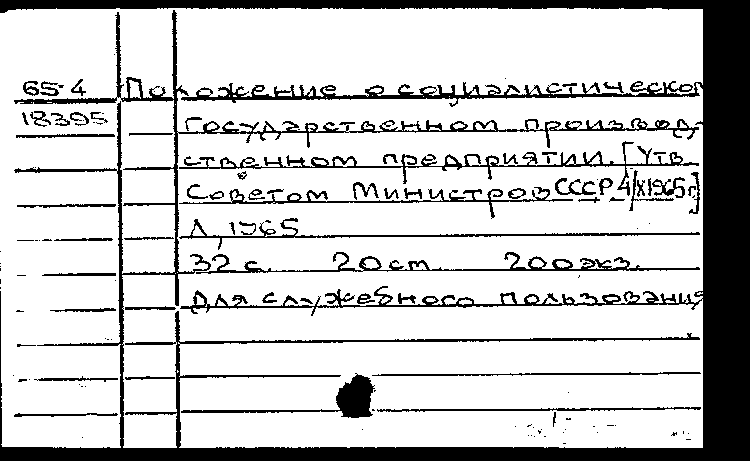 65-4 Положение о социалистическом
18395 государственном производ-
ственном предприятии. [Утв.
Советом Министров СССР 4/X 1965 г.]
Л., 1965
32 с. 20 см. 200 экз.
Для служебного пользования